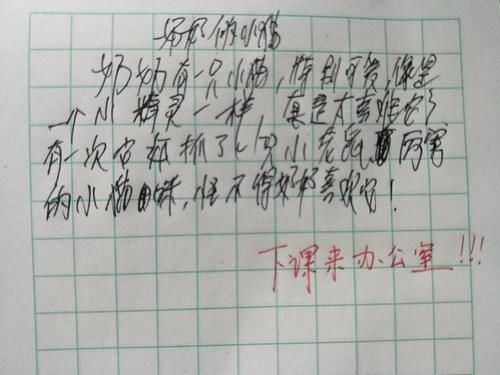 奶奶的小猫
奶奶有一只小猫，特别可爱，像是
一个小精灵一样，真是太喜欢它了
有一次它在抓了一只小老鼠，厉害
的小猫咪，怪不得奶奶喜欢它！
下课来办公室!!!